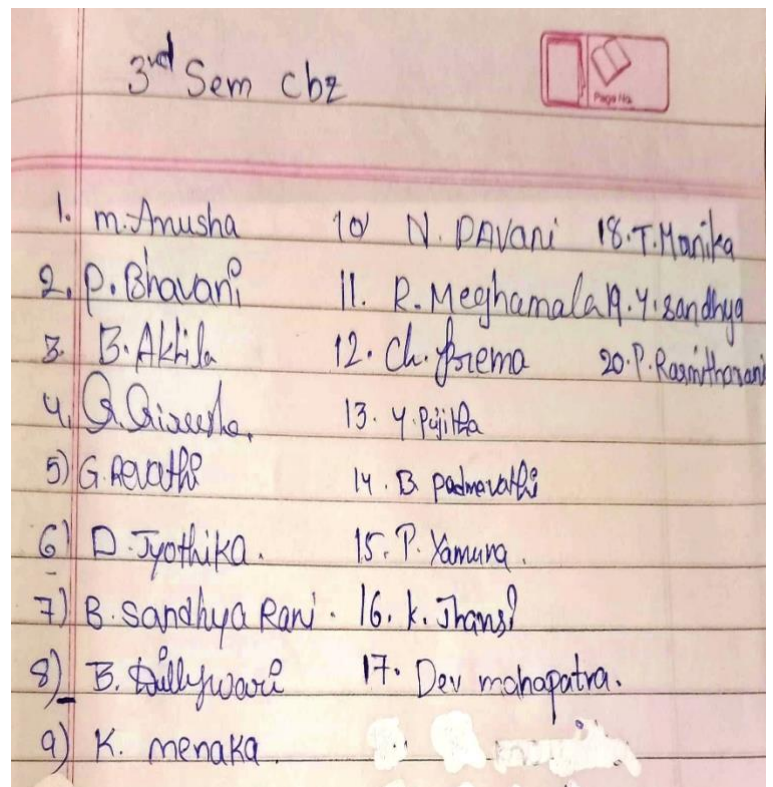 3rd Sem cbz
Page No.
1. M. Anusha
2. P. Bhavani
3. B. Akhila
4.
5) G. Revathi
6) D. Jyothika.
7) B. Sandhya Rani.
8) B.
9) K. menaka.
10) N. PAvani
11. R. Meghamala
12. Ch. Prema
13. Y. Pujitha
14. B. Padmavathi
15. P. Yamuna.
16. K. Jhansi
17. Dev mahapatra.
18. T. Manika
19. Y. Sandhya
20. P. Rasmitharani